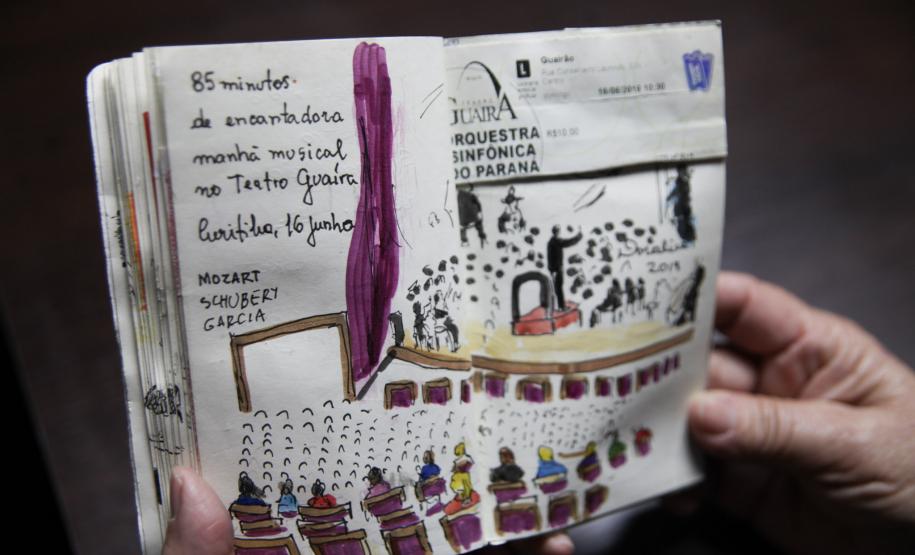 85 minutos
de encantadora
manhã musical
no Teatro Guaíra
Curitiba, 16 junho
MOZART
SCHUBERT
GARCIA
GUAÍRA
ORQUESTRA
SINFÔNICA
DO PARANÁ
L
Guairão
Centro
domingo
16/06/2019 10:30
R$10,00